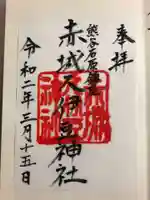 奉拝
熊谷石原鎮座
赤城久伊豆神社
令和二年三月十五日